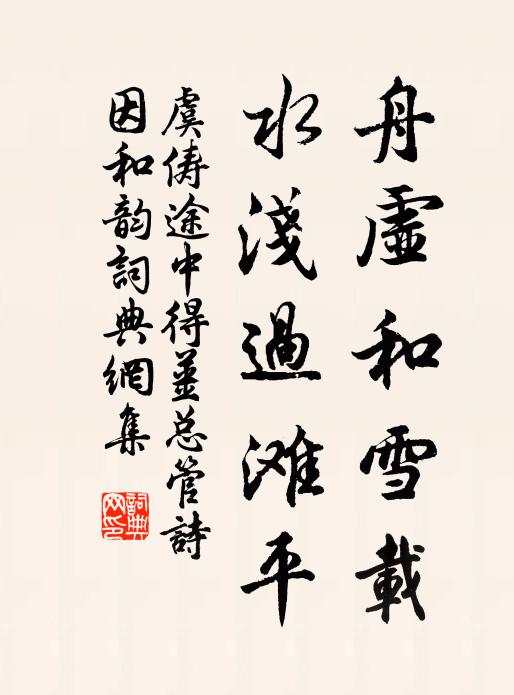 舟虛和雪載
水淺過滩平
虞俦途中得姜总管詩
因和韵詞典網集
詞典网印